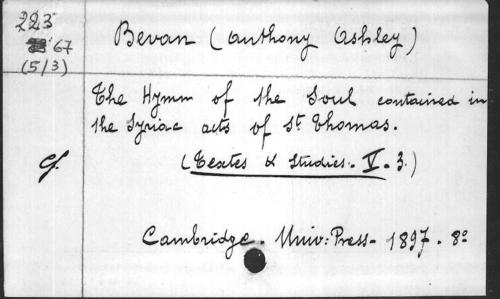 223
67
(5/3)
Bevan (Anthony Ashley)
The Hymn of the Soul contained in
the Syriac acts of St Thomas.
cf.
(Texts & Studies. V. 3.)
Cambridge. Univ: Press. 1897. 8o